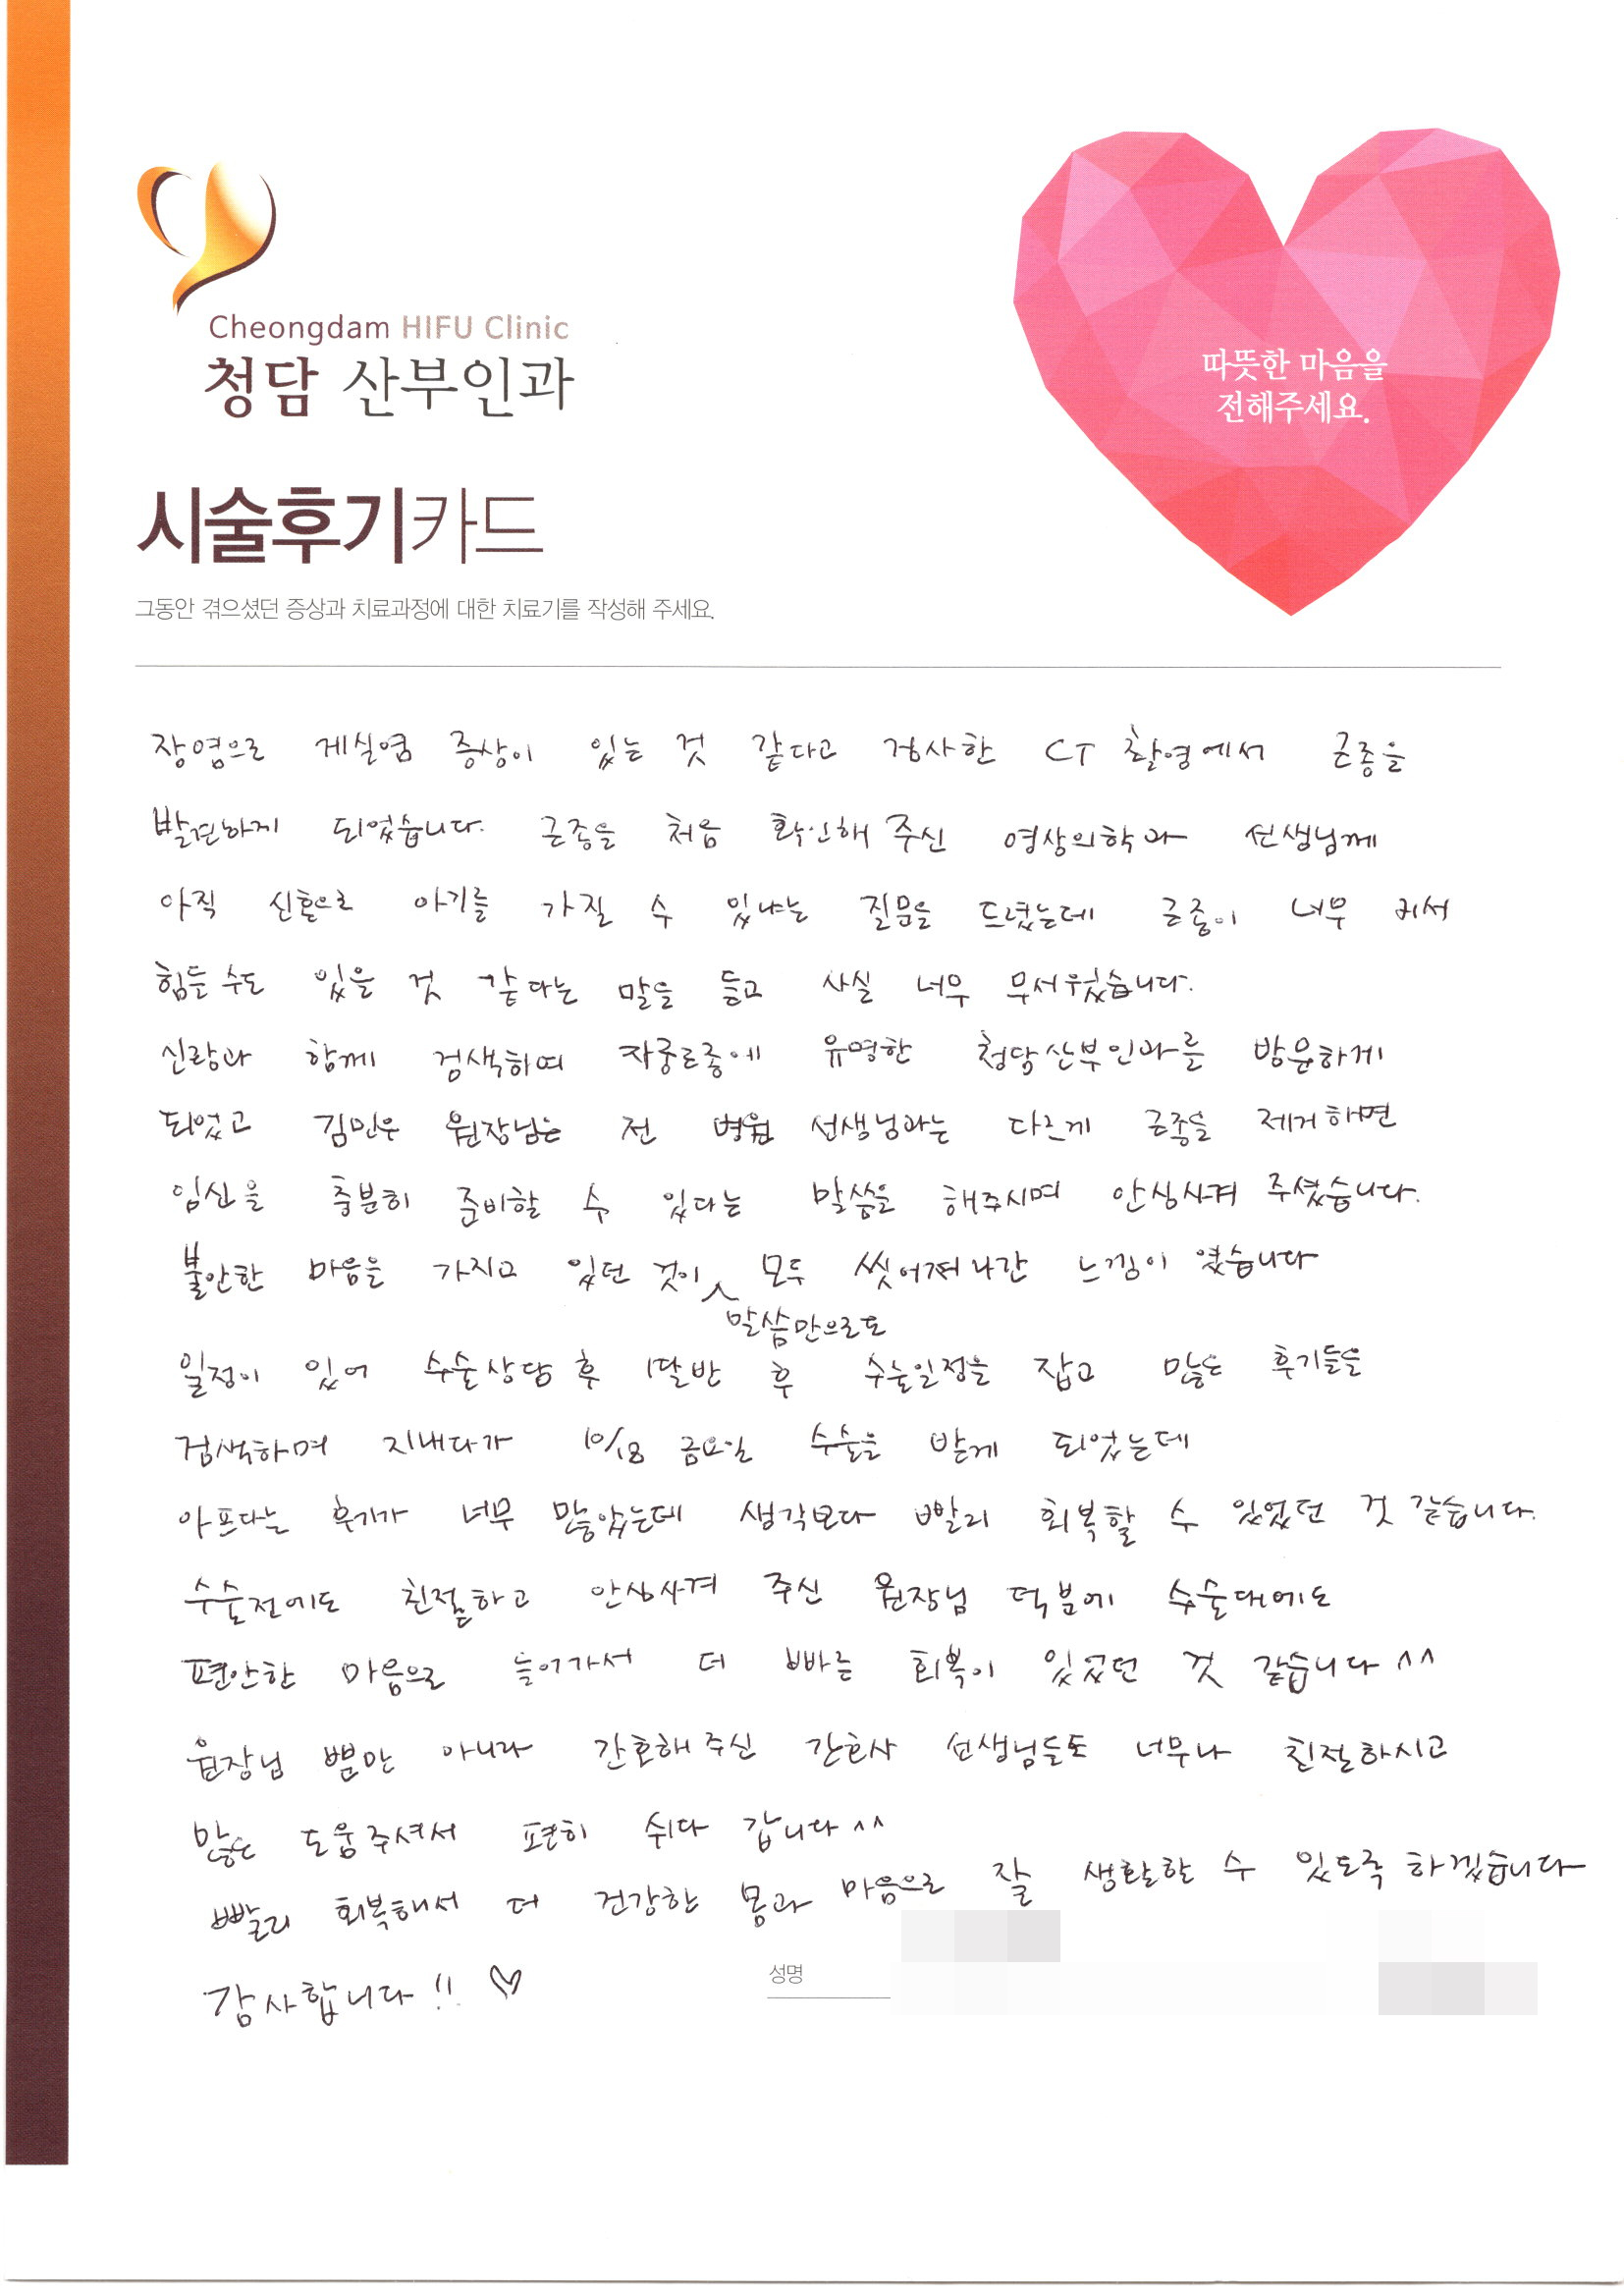 Cheongdam HIFU Clinic
청담 산부인과
따뜻한 마음을
전해주세요.
시술후기카드
그동안 겪으셨던 증상과 치료과정에 대한 치료기를 작성해 주세요.
장염으로 게실염 증상이 있는 것 같다고 검사한 CT 촬영에서 근종을
발견하게 되었습니다. 근종을 처음 확인해 주신 영상의학과 선생님께
아직 신혼으로 아기를 가질 수 있냐는 질문을 드렸는데 근종이 너무 커서
힘들 수도 있을 것 같다는 말을 듣고 사실 너무 무서웠습니다.
신랑과 함께 검색하여 자궁근종에 유명한 청담산부인과를 방문하게
되었고 김민우 원장님은 전 병원 선생님과는 다르게 근종을 제거해면
임신을 충분히 준비할 수 있다는 말씀을 해주시며 안심시켜 주셨습니다.
불안한 마음을 가지고 있던 것이 모두 씻어져 나간 느낌이 였습니다
말씀만으로도
일정이 있어 수술상담 후 1달반 후 수술일정을 잡고 많은 후기들을
검색하며 지내다가 10/18 금요일 수술을 받게 되었는데
아프다는 후기가 너무 많았는데 생각보다 빨리 회복할 수 있었던 것 같습니다.
수술전에도 친절하고 안심시켜 주신 원장님 덕분에 수술대에도
편안한 마음으로 들어가서 더 빠른 회복이 있었던 것 같습니다 ^^
원장님 뿐만 아니라 간호해주신 간호사 선생님들도 너무나 친절하시고
많은 도움주셔서 편히 쉬다 갑니다 ^^
빨리 회복해서 더 건강한 몸과 마음으로 잘 생활할 수 있도록 하겠습니다
감사합니다!! ♡
성명